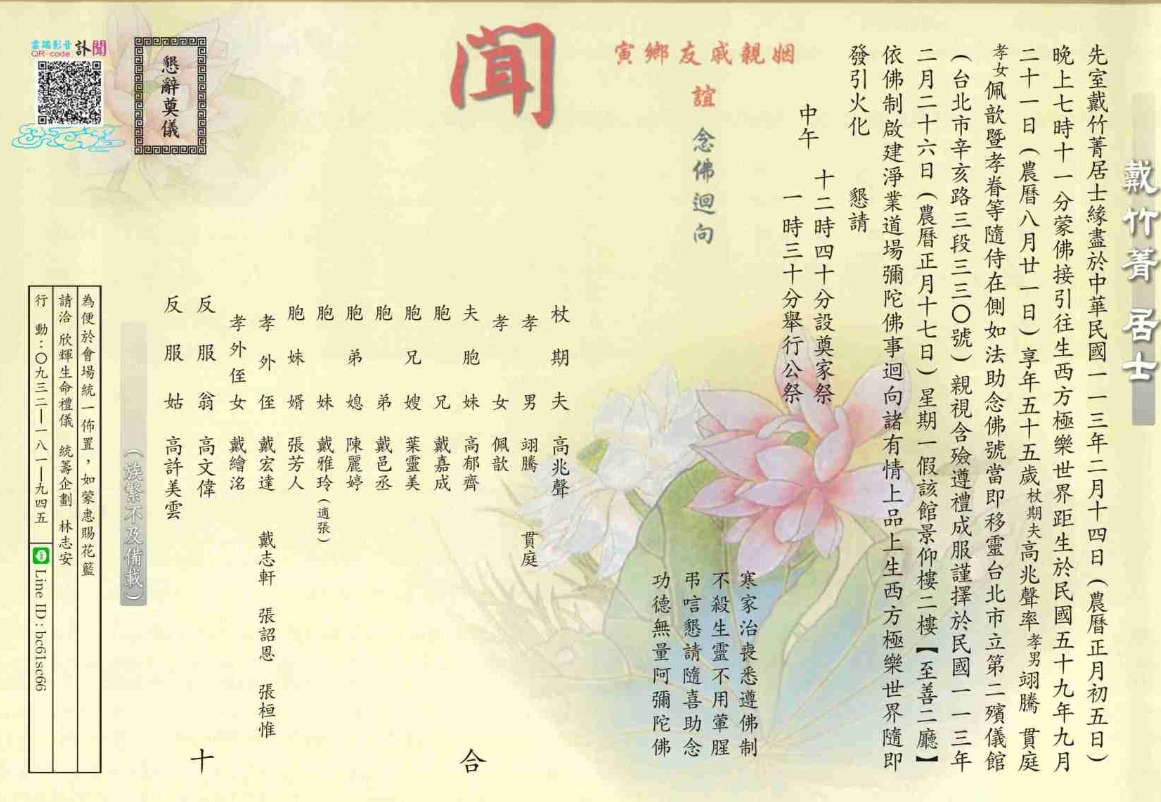 戴竹菁 居士
先室戴竹菁居士緣盡於中華民國一一三年二月十四日（農曆正月初五日）
晚上七時十一分蒙佛接引往生西方極樂世界距生於民國五十九年九月
二十一日（農曆八月廿一日）享年五十五歲杖期夫高兆聲率孝男翊騰 貫庭
孝女佩歆暨孝眷等隨侍在側如法助念佛號當即移靈台北市立第二殯儀館
（台北市辛亥路三段三三〇號）親視含殮遵禮成服謹擇於民國一一三年
二月二十六日（農曆正月十七日）星期一假該館景仰樓二樓【至善二廳】
依佛制啟建淨業道場彌陀佛事迴向諸有情上品上生西方極樂世界隨即
發引火化 懇請
中午 十二時四十分設奠家祭
一時三十分舉行公祭
寅鄉友戚親姻
誼 念佛迴向
聞
寒家治喪悉遵佛制
不殺生靈不用葷腥
弔唁懇請隨喜助念
功德無量阿彌陀佛
杖期夫 高兆聲
孝男 翊騰 貫庭
孝女 佩歆
夫胞妹 高郁齊
胞兄 戴嘉成
胞兄嫂 葉靈美
胞弟 戴邑丞
胞弟媳 陳麗婷
胞妹 戴雅玲（適張）
胞妹婿 張芳人
孝外侄 戴宏達 戴志軒 張詔恩 張桓惟
孝外侄女 戴繪洺
反服翁 高文偉
反服姑 高許美雲
合 十
（族繁不及備載）
懇辭奠儀
訃聞
雲端影音
QR-code
為便於會場統一佈置，如蒙惠賜花籃
請洽 欣輝生命禮儀 統籌企劃 林志安
行動：〇九三二—一八一—九四五 Line ID : bc61sc66